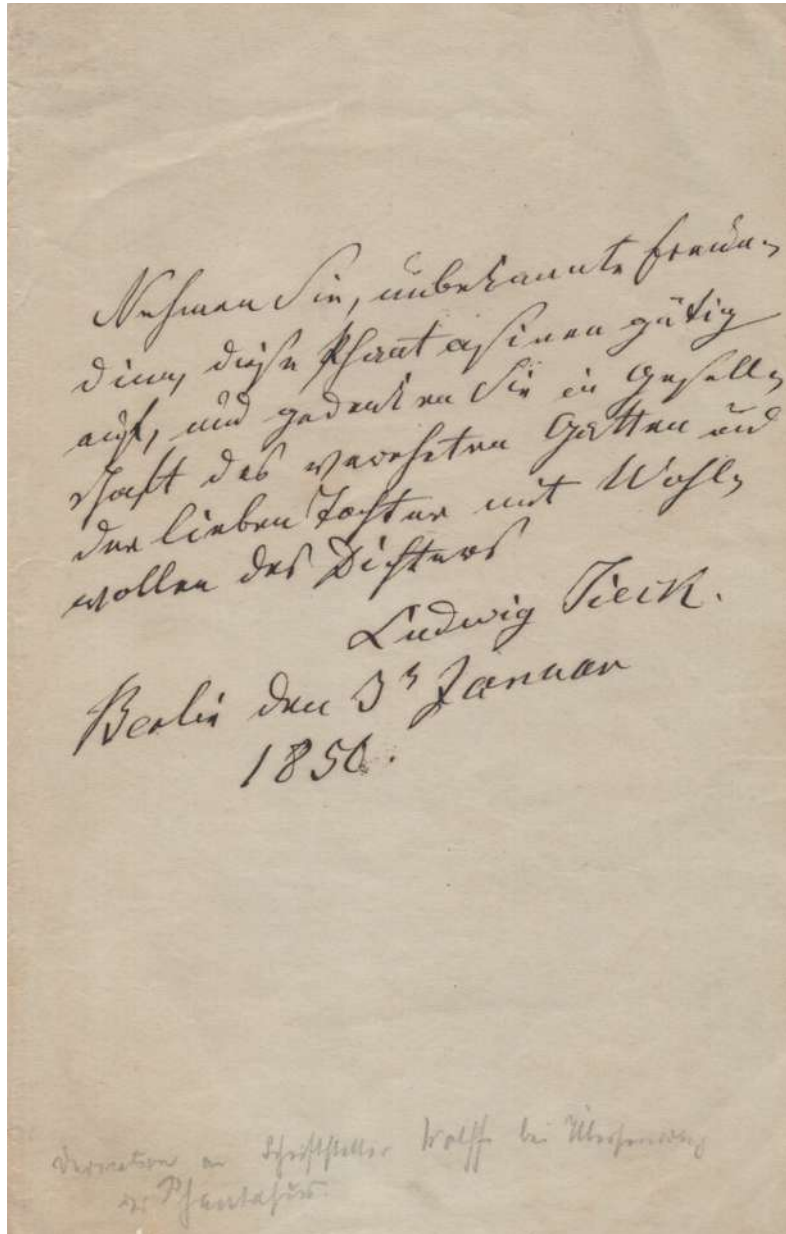 Nehmen Sie, unbekannte Freun-
dinn, diese Phantasieen gütig
auf, und gedenken Sie in Gesell-
schaft des verehrten Gatten und
der lieben Tochter mit Wohl-
wollen des Dichters
Ludwig Tieck.
Berlin den 3t Januar
1850.
Schriftsteller Wolff bei Übersendung
des Phantasus.